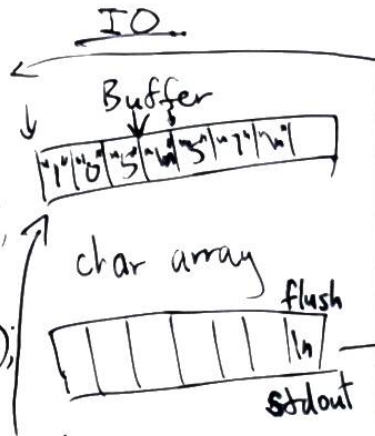 IO
Buffer
"1" "0" "5" "\n" "5" "7" "\n"
char array
flush
);
\n
stdout